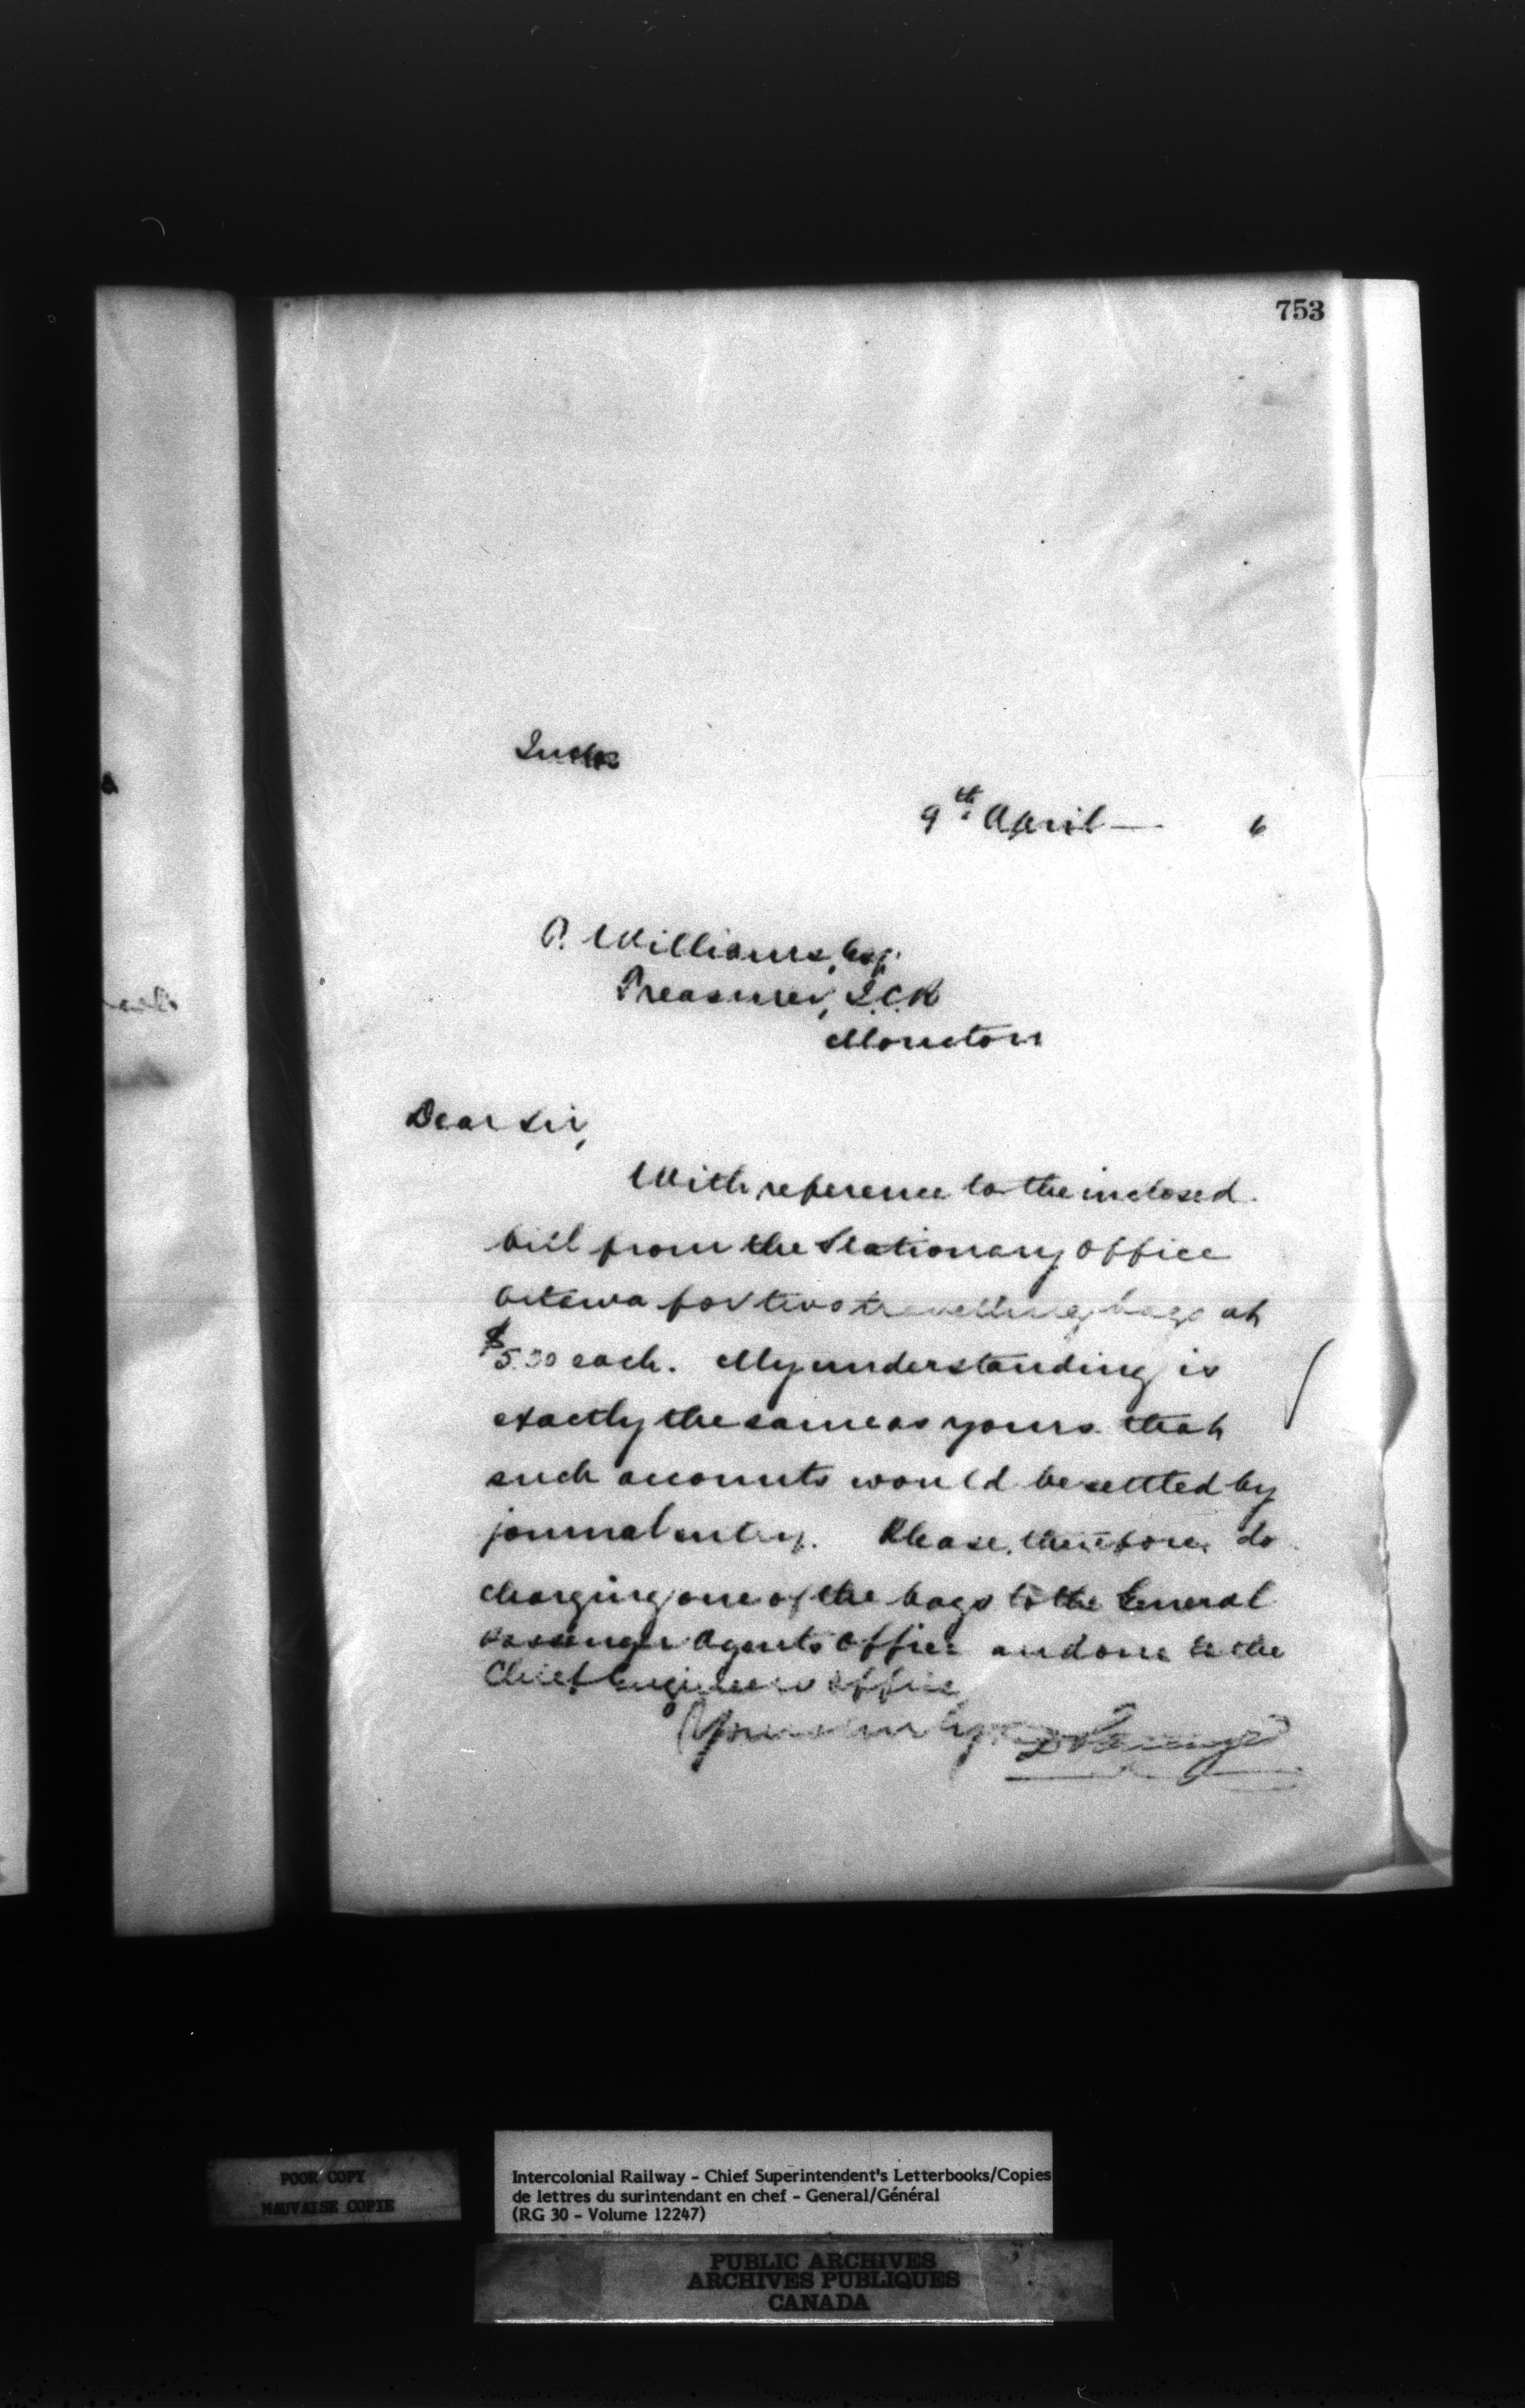 753
9th April— 6
P. Williams, Esq.
Treasurer, I.C.R
Moncton
Dear Sir,
With reference to the inclosed
bill from the Stationary Office
Ottawa for two travelling bags at
$5.50 each. My understanding is
exactly the same as yours that
such accounts would be settled by
journal entry. Please, therefore, do
charging one of the bags to the General
Passenger Agents Office and one to the
Chief Engineers office
Yours truly
POOR COPY
MAUVAISE COPIE
Intercolonial Railway - Chief Superintendent's Letterbooks/Copies
de lettres du surintendant en chef - General/Général
(RG 30 - Volume 12247)
PUBLIC ARCHIVES
ARCHIVES PUBLIQUES
CANADA